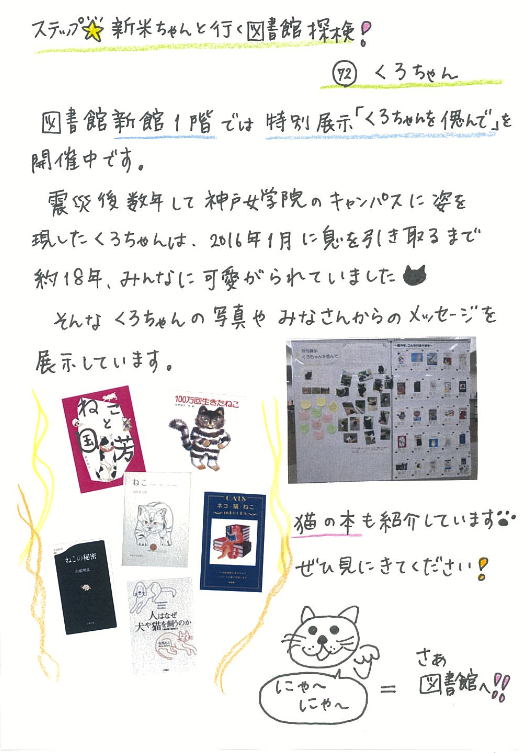 ステップ 新米ちゃんと行く図書館探検!
㊷ くろちゃん
図書館新館1階では特別展示「くろちゃんを偲んで」を
開催中です。
震災後数年して神戸女学院のキャンパスに姿を
現したくろちゃんは、2016年1月に息を引き取るまで
約18年、みんなに可愛がられていました
そんなくろちゃんの写真やみなさんからのメッセージを
展示しています。
ねこと国芳
100万回生きたねこ
ねこ
CATS
ネコ・猫・ねこ
ねこの秘密
人はなぜ
犬や猫を飼うのか
猫の本も紹介しています
ぜひ見にきてください!
にゃ〜
にゃ〜
=
さぁ
図書館へ!!